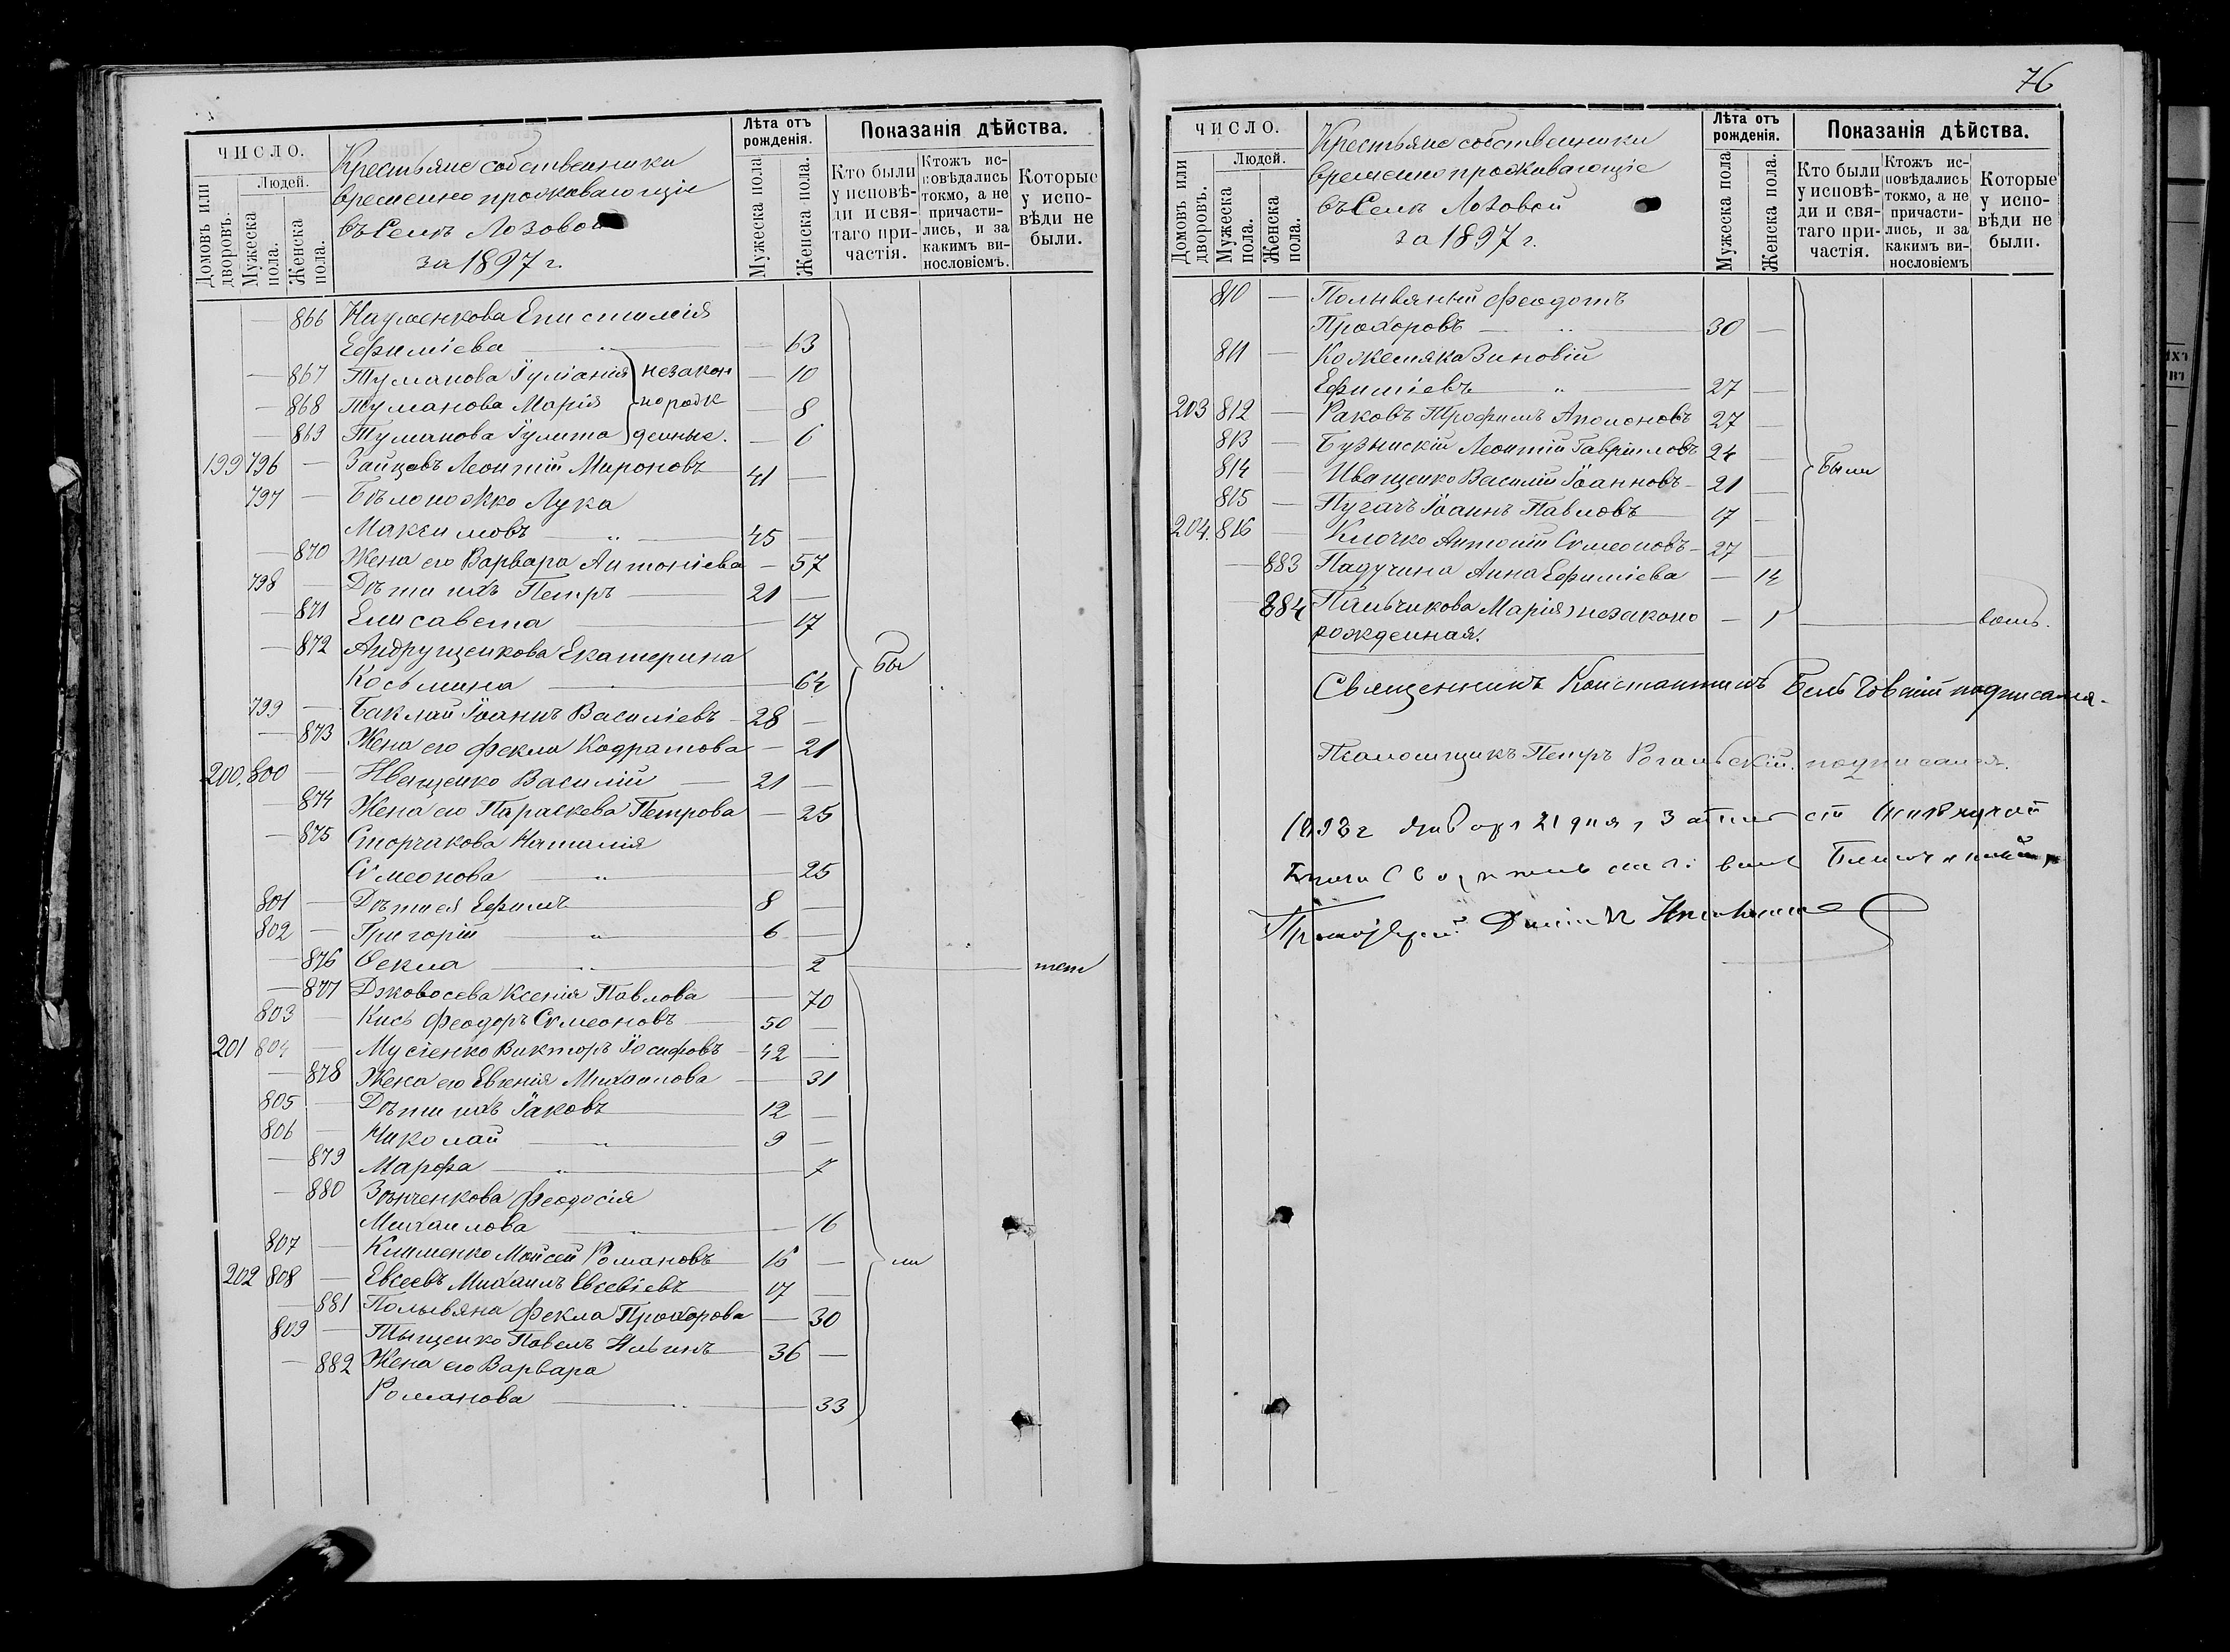 ЧИСЛО.
Людей.
Домовъ или дворовъ.
Мужеска пола.
Женска пола.
Крестьяне собственники
временно проживающіе
въ Селѣ Лозовой
за 1897 г.
Лѣта отъ рожденія.
Мужеска пола
Женска пола.
Показанія дѣйства.
Кто были у исповѣ-ди и свя-таго при-частія.
Ктожъ ис-повѣдались токмо, а не причасти-лись, и за какимъ ви-нословіемъ.
Которые у испо-вѣди не были.
— 866 Науменкова Епистимія
Ефиміева — 63
— 867 Туманова Іуліанія незакон — 10
— 868 Туманова Марія норож — 8
— 869 Туманова Іулита денные. — 6
199 796 — Зайцевъ Леонтій Мироновъ 41 —
797 — Бѣлоножко Лука
Максимовъ „ 45 —
— 870 Жена его Варвара Антоніева — 57
798 — Дѣти ихъ Петръ 21 —
— 871 Елисавета — 17
— 872 Андрущенкова Екатерина
Косьмина — 64
Бы
799 — Баклай Іоаннъ Василіевъ 28 —
— 873 Жена его Фекла Кодратова — 21
200. 800 — Иващенко Василій 21 —
— 874 Жена его Параскева Петрова — 25
— 875 Сторчакова Наталія
Сѵмеонова „ 25
801 — Дѣти ея Ефимъ 8 —
802 — Григорій „ 6 —
— 876 Ѳекла „ 2
— 877 Ксенія Павлова — 70
803 — Кись Феодоръ Сѵмеоновъ 50 —
201 804 — Мусіенко Викторъ Іосифовъ 42 —
— 878 Жена его Евгенія Михаилова — 31
805 — Дѣти ихъ Іаковъ 12 —
806 — Николай „ 9 —
— 879 Марфа „ 7
— 880 Зѣнченкова Феодосія
Михаилова „ 16
807 — Клименко Моисей Романовъ 16 —
ли
202 808 — Евсеевъ Михаилъ Евсевіевъ 17 —
— 881 Полывяна Фекла Прохорова — 30
809 — Тыщенко Павелъ Ильинъ 36 —
— 882 Жена его Варвара
Романова „ 33
76
ЧИСЛО.
Людей.
Домовъ или дворовъ.
Мужеска пола.
Женска пола.
Крестьяне собственники
временно проживающіе
въ Селѣ Лозовой
за 1897 г.
Лѣта отъ рожденія.
Мужеска пола
Женска пола.
Показанія дѣйства.
Кто были у исповѣ-ди и свя-таго при-частія.
Ктожъ ис-повѣдались токмо, а не причасти-лись, и за какимъ ви-нословіемъ
Которые у испо-вѣди не были.
810 — Полывяный Феодотъ
Прохоровъ „ 30 —
811 — Кожемяка Зиновій
Ефиміевъ „ 27 —
203 812 — Раковъ Трофимъ 27 —
813 — Леонтій Гавріиловъ 24 —
Были
814 — Иващенко Василій Іоанновъ 21 —
815 — Пугачъ Іоаннъ Павловъ 17 —
204. 816 — Клочко Антоній Сѵмеоновъ 27 —
— 883 Падучина Анна Ефиміева — 14
884 Пальчикова Марія незаконо — 1
рожденная.
Священникъ Константинъ подписался.
Псаломщикъ Петръ Рогальскій подписался.
1898 г Января 21 дня
Протоіерей